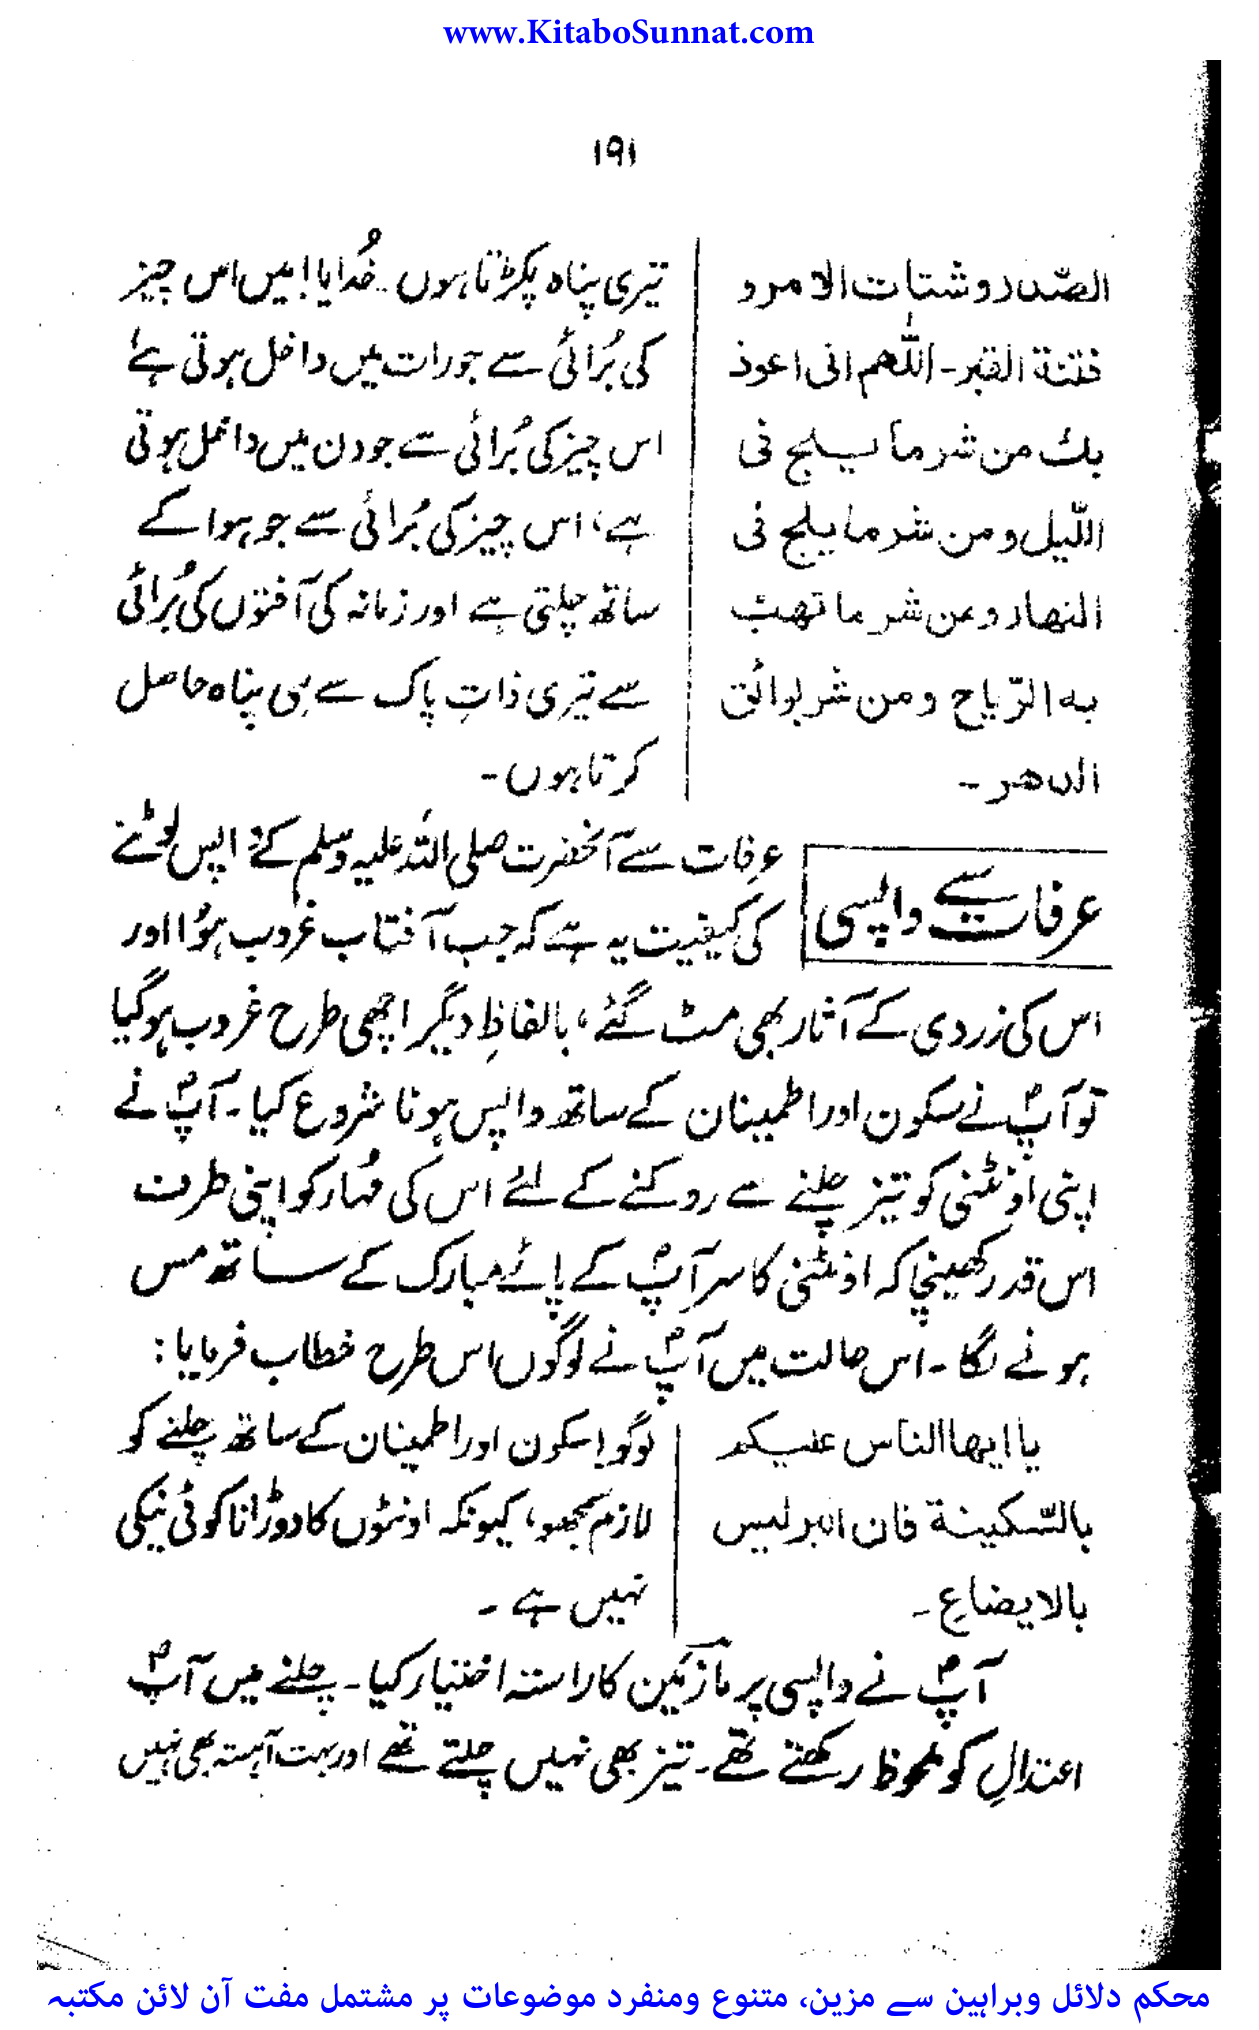 www.KitaboSunnat.com
۱۹۱
الصّدر وشتات الامر و
فتنة القبر۔ اللّٰهم انی اعوذ
بك من شر ما یلج فی
اللّیل ومن شر ما یلج فی
النهار ومن شر ما تهب
به الرّیاح ومن شر بوائق
الدهر۔
تیری پناہ پکڑتا ہوں۔ خُدایا! میں اس چیز
کی بُرائی سے جو رات میں داخل ہوتی ہے
اس چیز کی بُرائی سے جو دن میں داخل ہوتی
ہے، اس چیز کی بُرائی سے جو ہوا کے
ساتھ چلتی ہے اور زمانہ کی آفتوں کی بُرائی
سے تیری ذاتِ پاک سے ہی پناہ حاصل
کرتا ہوں۔
عرفات سے واپسی
عرفات سے آنحضرت صلی اللہ علیہ وسلم کے واپس لوٹنے
کی کیفیت یہ ہے کہ جب آفتاب غروب ہوُا اور
اس کی زردی کے آثار بھی مٹ گئے، بالفاظِ دیگر اچھی طرح غروب ہو گیا
تو آپؐ نے سکون اور اطمینان کے ساتھ واپس ہونا شروع کیا۔ آپؐ نے
اپنی اونٹنی کو تیز چلنے سے روکنے کے لئے اس کی مُہار کو اپنی طرف
اس قدر کھینچا کہ اونٹنی کا سر آپؐ کے پائے مبارک کے ساتھ مس
ہونے لگا۔ اس حالت میں آپؐ نے لوگوں اس طرح خطاب فرمایا:
یا ایها الناس علیکم
بالسّکینة فان البر لیس
بالایضاعِ۔
لوگو! سکون اور اطمینان کے ساتھ چلنے کو
لازم سمجھو، کیونکہ اونٹوں کا دوڑانا کوئی نیکی
نہیں ہے۔
آپؐ نے واپسی پر مازمین کا راستہ اختیار کیا۔ چلنے میں آپؐ
اعتدالِ کو ملحوظ رکھتے تھے۔ تیز بھی نہیں چلتے تھے اور بہت آہستہ بھی نہیں
محکم دلائل وبراہین سے مزین، متنوع ومنفرد موضوعات پر مشتمل مفت آن لائن مکتبہ